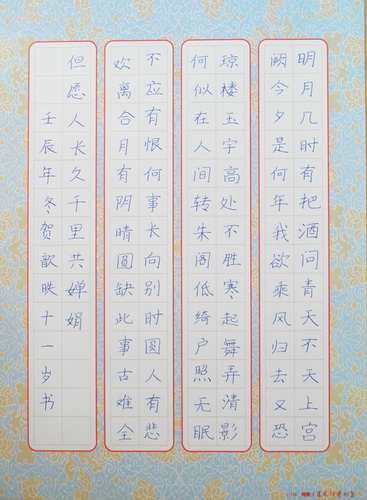 明月几时有把酒问青天不天上宫
阙今夕是何年我欲乘风归去又恐
琼楼玉宇高处不胜寒起舞弄清影
何似在人间转朱阁低绮户照无眠
不应有恨何事长向别时圆人有悲
欢离合月有阴晴圆缺此事古难全
但愿人长久千里共婵娟
壬辰年冬贺歆映十一岁书